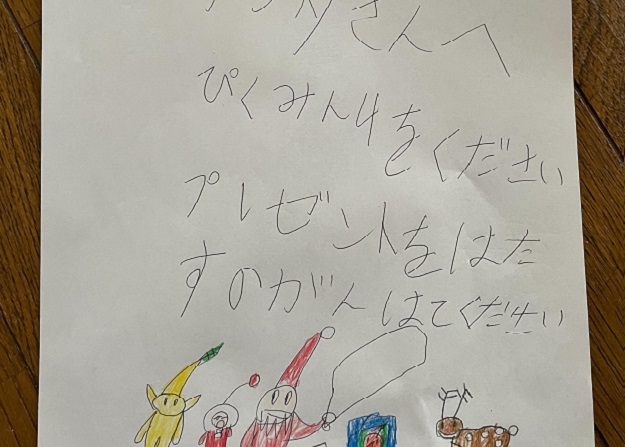 サンタさんへ
ぴくみん4をください
プレゼントをはた
すのがんはてください